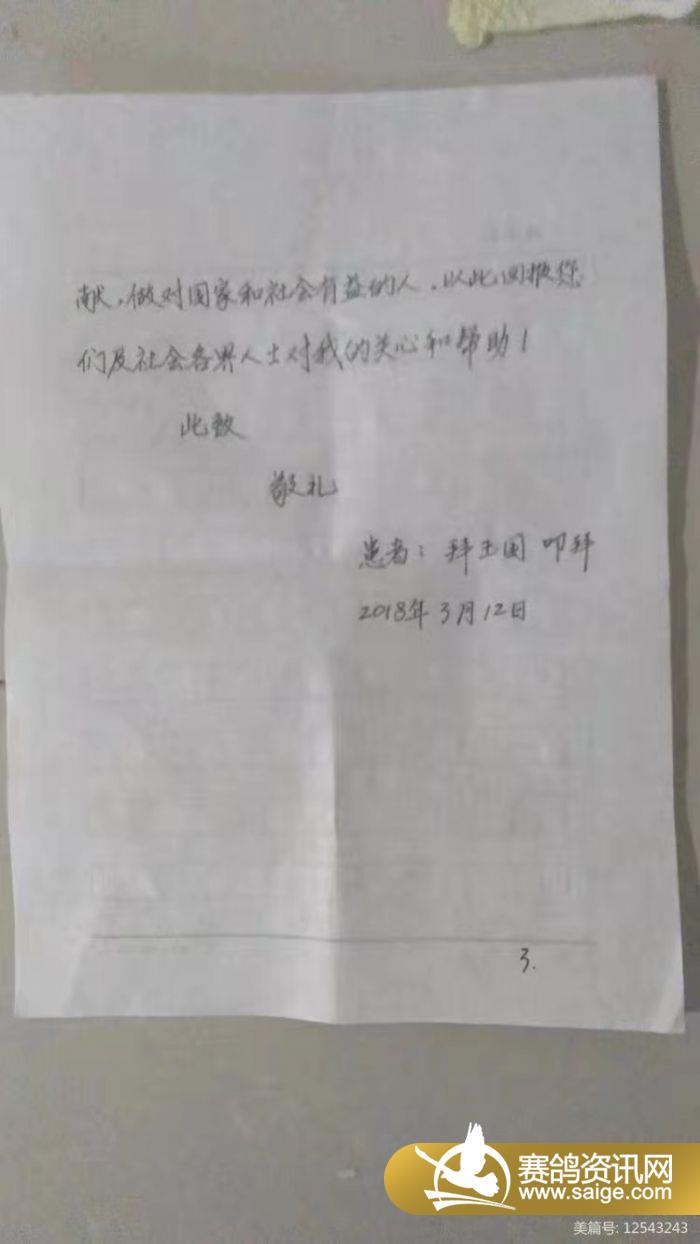 献，做对国家和社会有益的人，以此回报您
们及社会各界人士对我的关心和帮助！
此致
敬礼
患者：拜玉国 叩拜
2018年3月12日
3.
赛鸽资讯网
www.saige.com
美篇号: 12543243